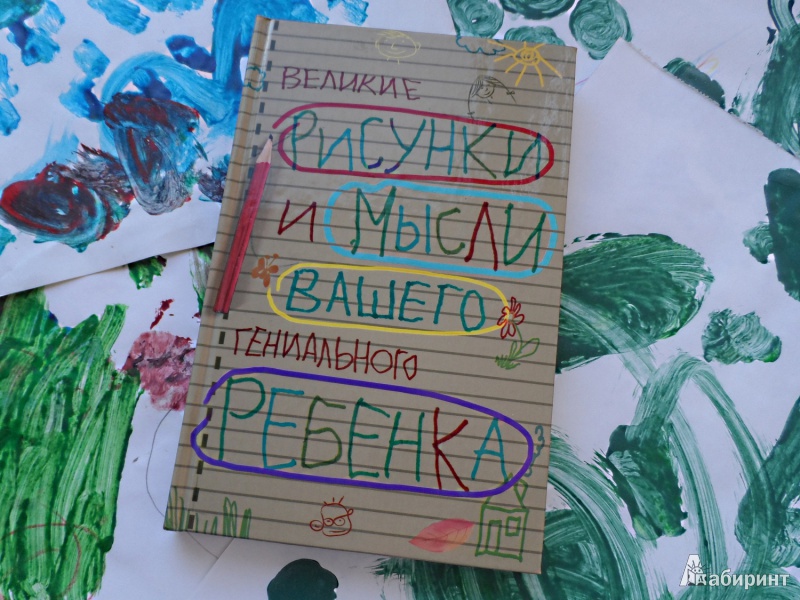 ВЕЛИКИЕ
РИСУНКИ
И МЫСЛИ
ВАШЕГО
ГЕНИАЛЬНОГО
РЕБЕНКА
Лабиринт